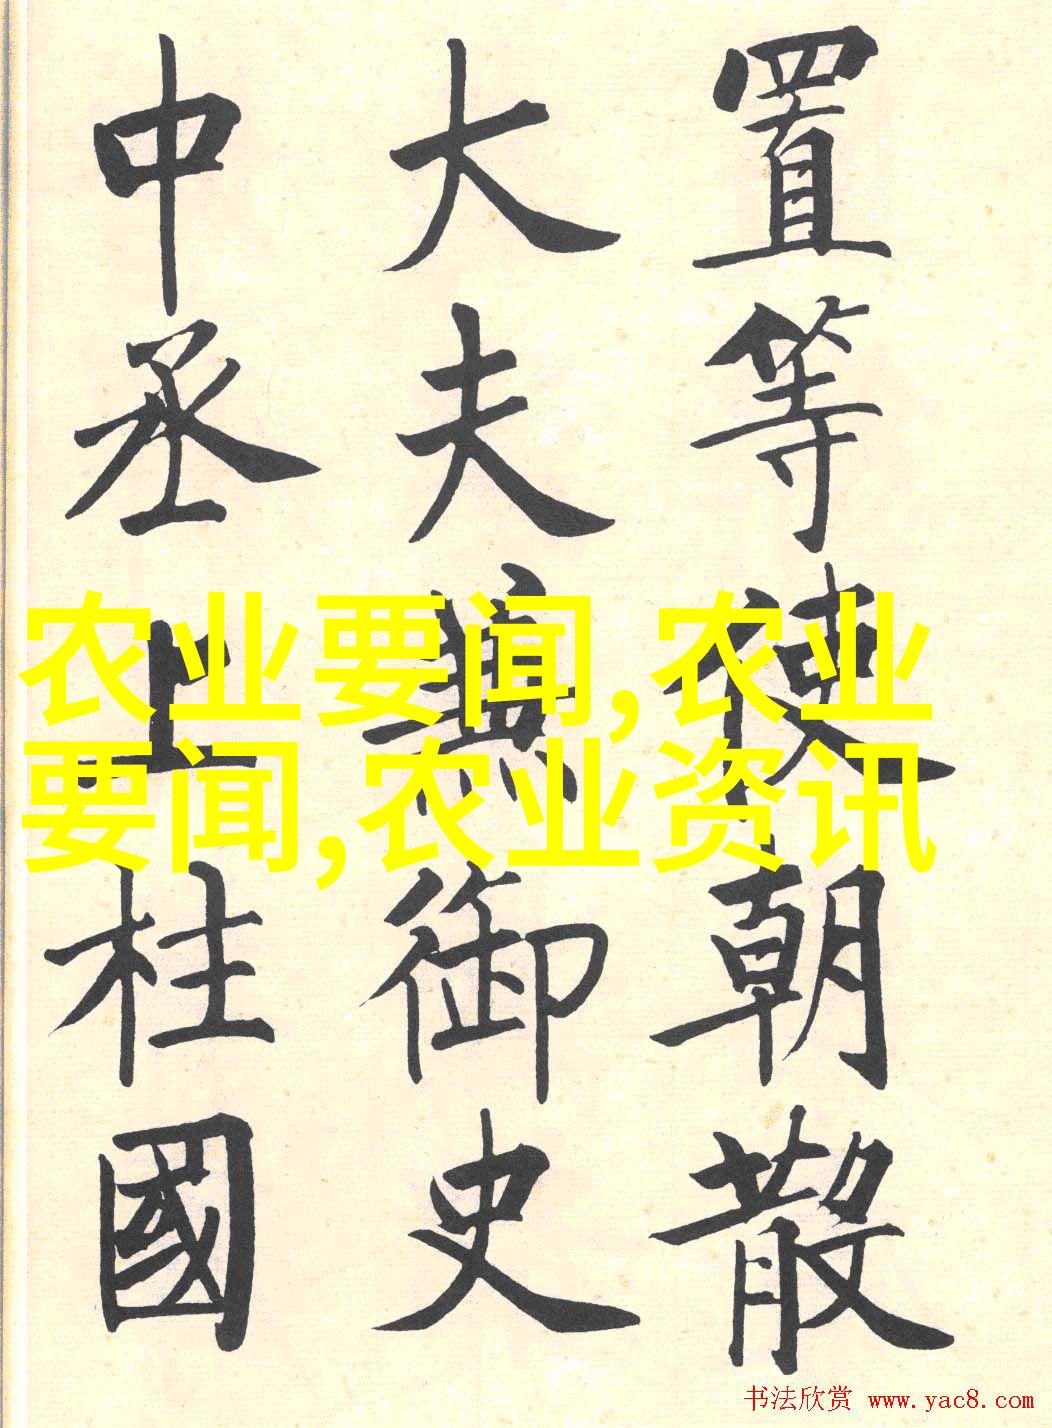 置等使朝散
大夫兼御史
中丞上柱國
农业要闻,农业
要闻,农业资讯
书法欣赏 www.yac8.com